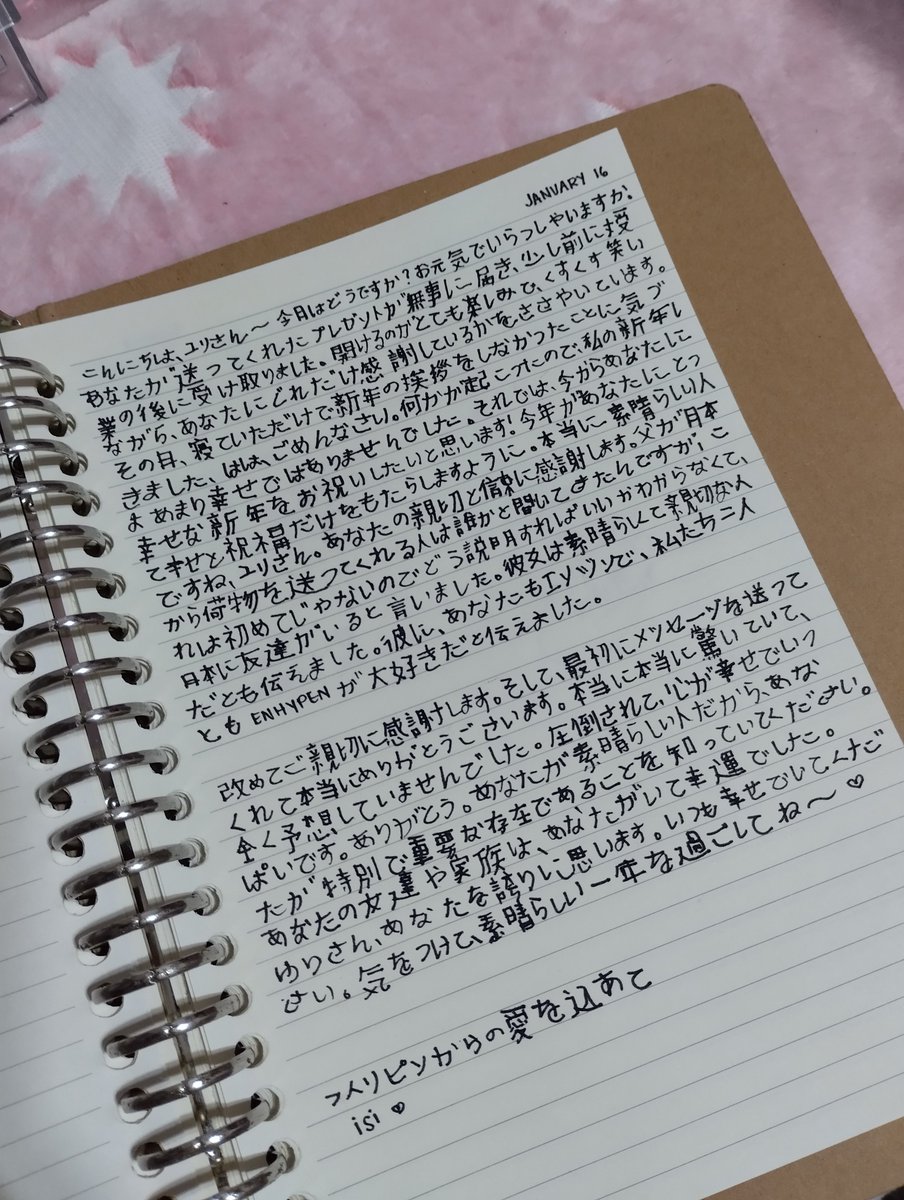 JANUARY 16
こんにちは、ユリさん〜 今日はどうですか?お元気でいらっしゃいますか。
あなたが送ってくれたプレゼントが無事に届き、少し前に授
業の後に受け取りました。開けるのがとても楽しみで、くすくす笑い
ながら、あなたにどれだけ感謝しているかをささやいています。
その日、寝ていただけで新年の挨拶をしなかったことに気づ
きました、はは、ごめんなさい。何かが起こったので、私の新年し
ま あまり幸せではありませんでした。それでは、今からあなたに
幸せな新年をお祝いしたいと思います!今年があなたにとっ
て幸せと祝福だけをもたらしますように。本当に素晴らしい人
ですね、ユリさん。あなたの親切と信頼に感謝します。父が日本
から荷物を送ってくれる人は誰かと聞いてきたんですがこ
れは初めてじゃないのでどう説明すればいいかわからなくて、
日本に友達がいると言いました。彼女は素晴らしくて親切な人
だとも伝えました。彼に、あなたもエンジンで、私たち二人
とも ENHYPEN が大好きだと伝えました。
改めてご親切に感謝けします。そして、最初にメッセージを送って
くれて本当にありがとうございます。本当に本当に驚いていて、
全く予想していませんでした。圧倒されて、心が幸せでいっ
ぱいです。ありがとう。あなたが素晴らしい人だから、あな
たが特別で重要な存在であることを知っていてください。
あなたの友達や家族は、あなたがいて幸運でした。
ゆりさん、あなたを誇りに思います。いつも幸せでいてくだ
さい。気をつけて、素晴らしい一年を過ごしてね〜 ♡
フィリピンからの愛を込めて
isi ♡